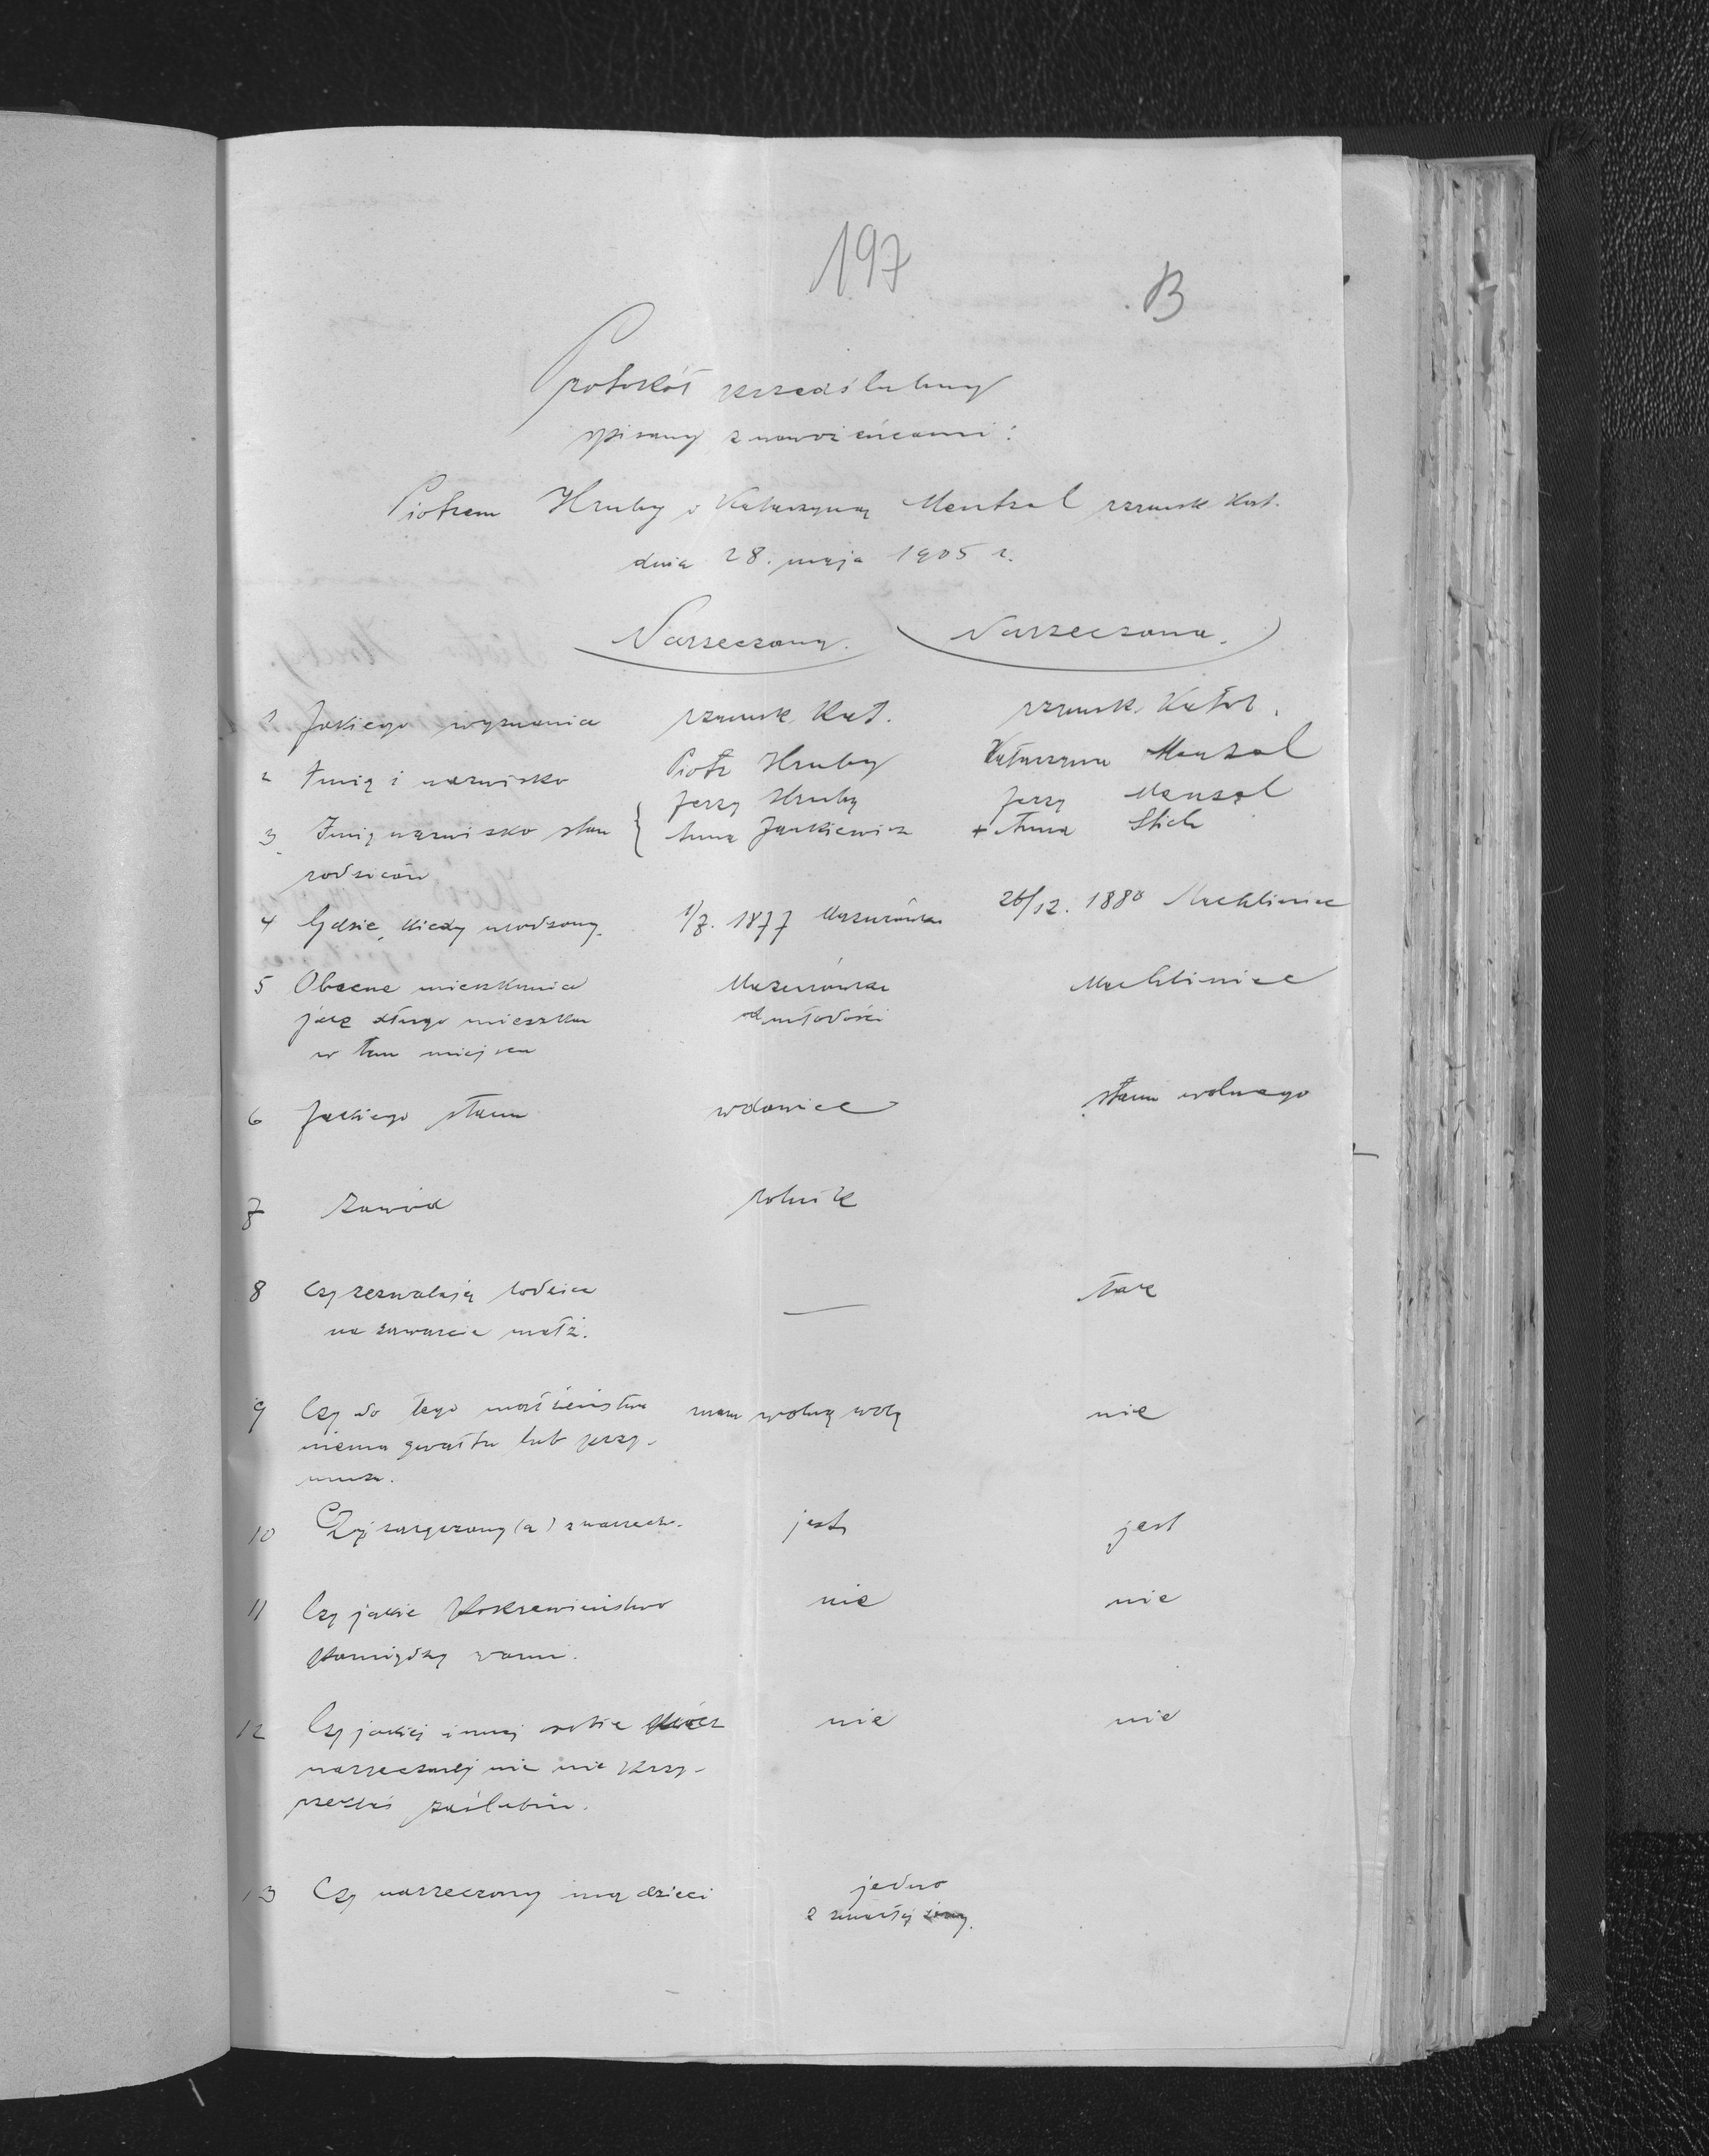 197
B
Protokół przedślubny
spisany z nowożeńcami:
Piotrem Hruby i Katarzyną Mentzel rzymsk. kat.
dnia 28. maja 1905 r.
Narzeczony. Narzeczona.
1 Jakiego wyznania rzymsk. kat. rzymsk. katol.
2 Imię i nazwisko Piotr Hruby Katarzyna Menzel
3 Imię nazwisko stan { Jerzy Hruby Jerzy Menzel
Anna Jankiewicz + Anna Stich
rodziców
4 Gdzie, kiedy urodzony. 1/7. 1877 Mazurówka 26/12. 1880 Machliniec
5 Obecne mieszkanie Mazurówka Machliniec
jak długo mieszka od młodości
w tem miejscu
6 Jakiego stanu wdowiec stanu wolnego
7 Zawód rolnik
8 Czy zezwalają rodzice — tak
na zawarcie małż.
9 Czy do tego małżeństwa mam wolną wolę nie
niema gwałtu lub przy-
musu.
10 Czy zaręczony (a) z narzecz. jest jest
11 Czy jakie pokrewieństwo nie nie
pomiędzy wami.
12 Czy jakiej innej osobie nie nie
narzeczonej nie nie przy-
rzekłeś zaślubin.
13 Czy narzeczony ma dzieci jedno
z zmarłej żony.